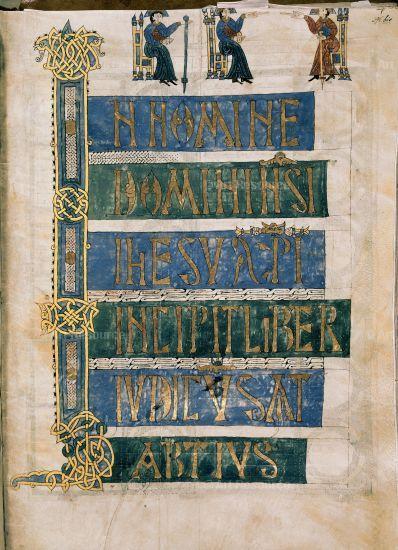 IN NOMINE
DOMINI
IHESV XPI
INCIPIT LIBER
IVDICVS AT
ABTIVS